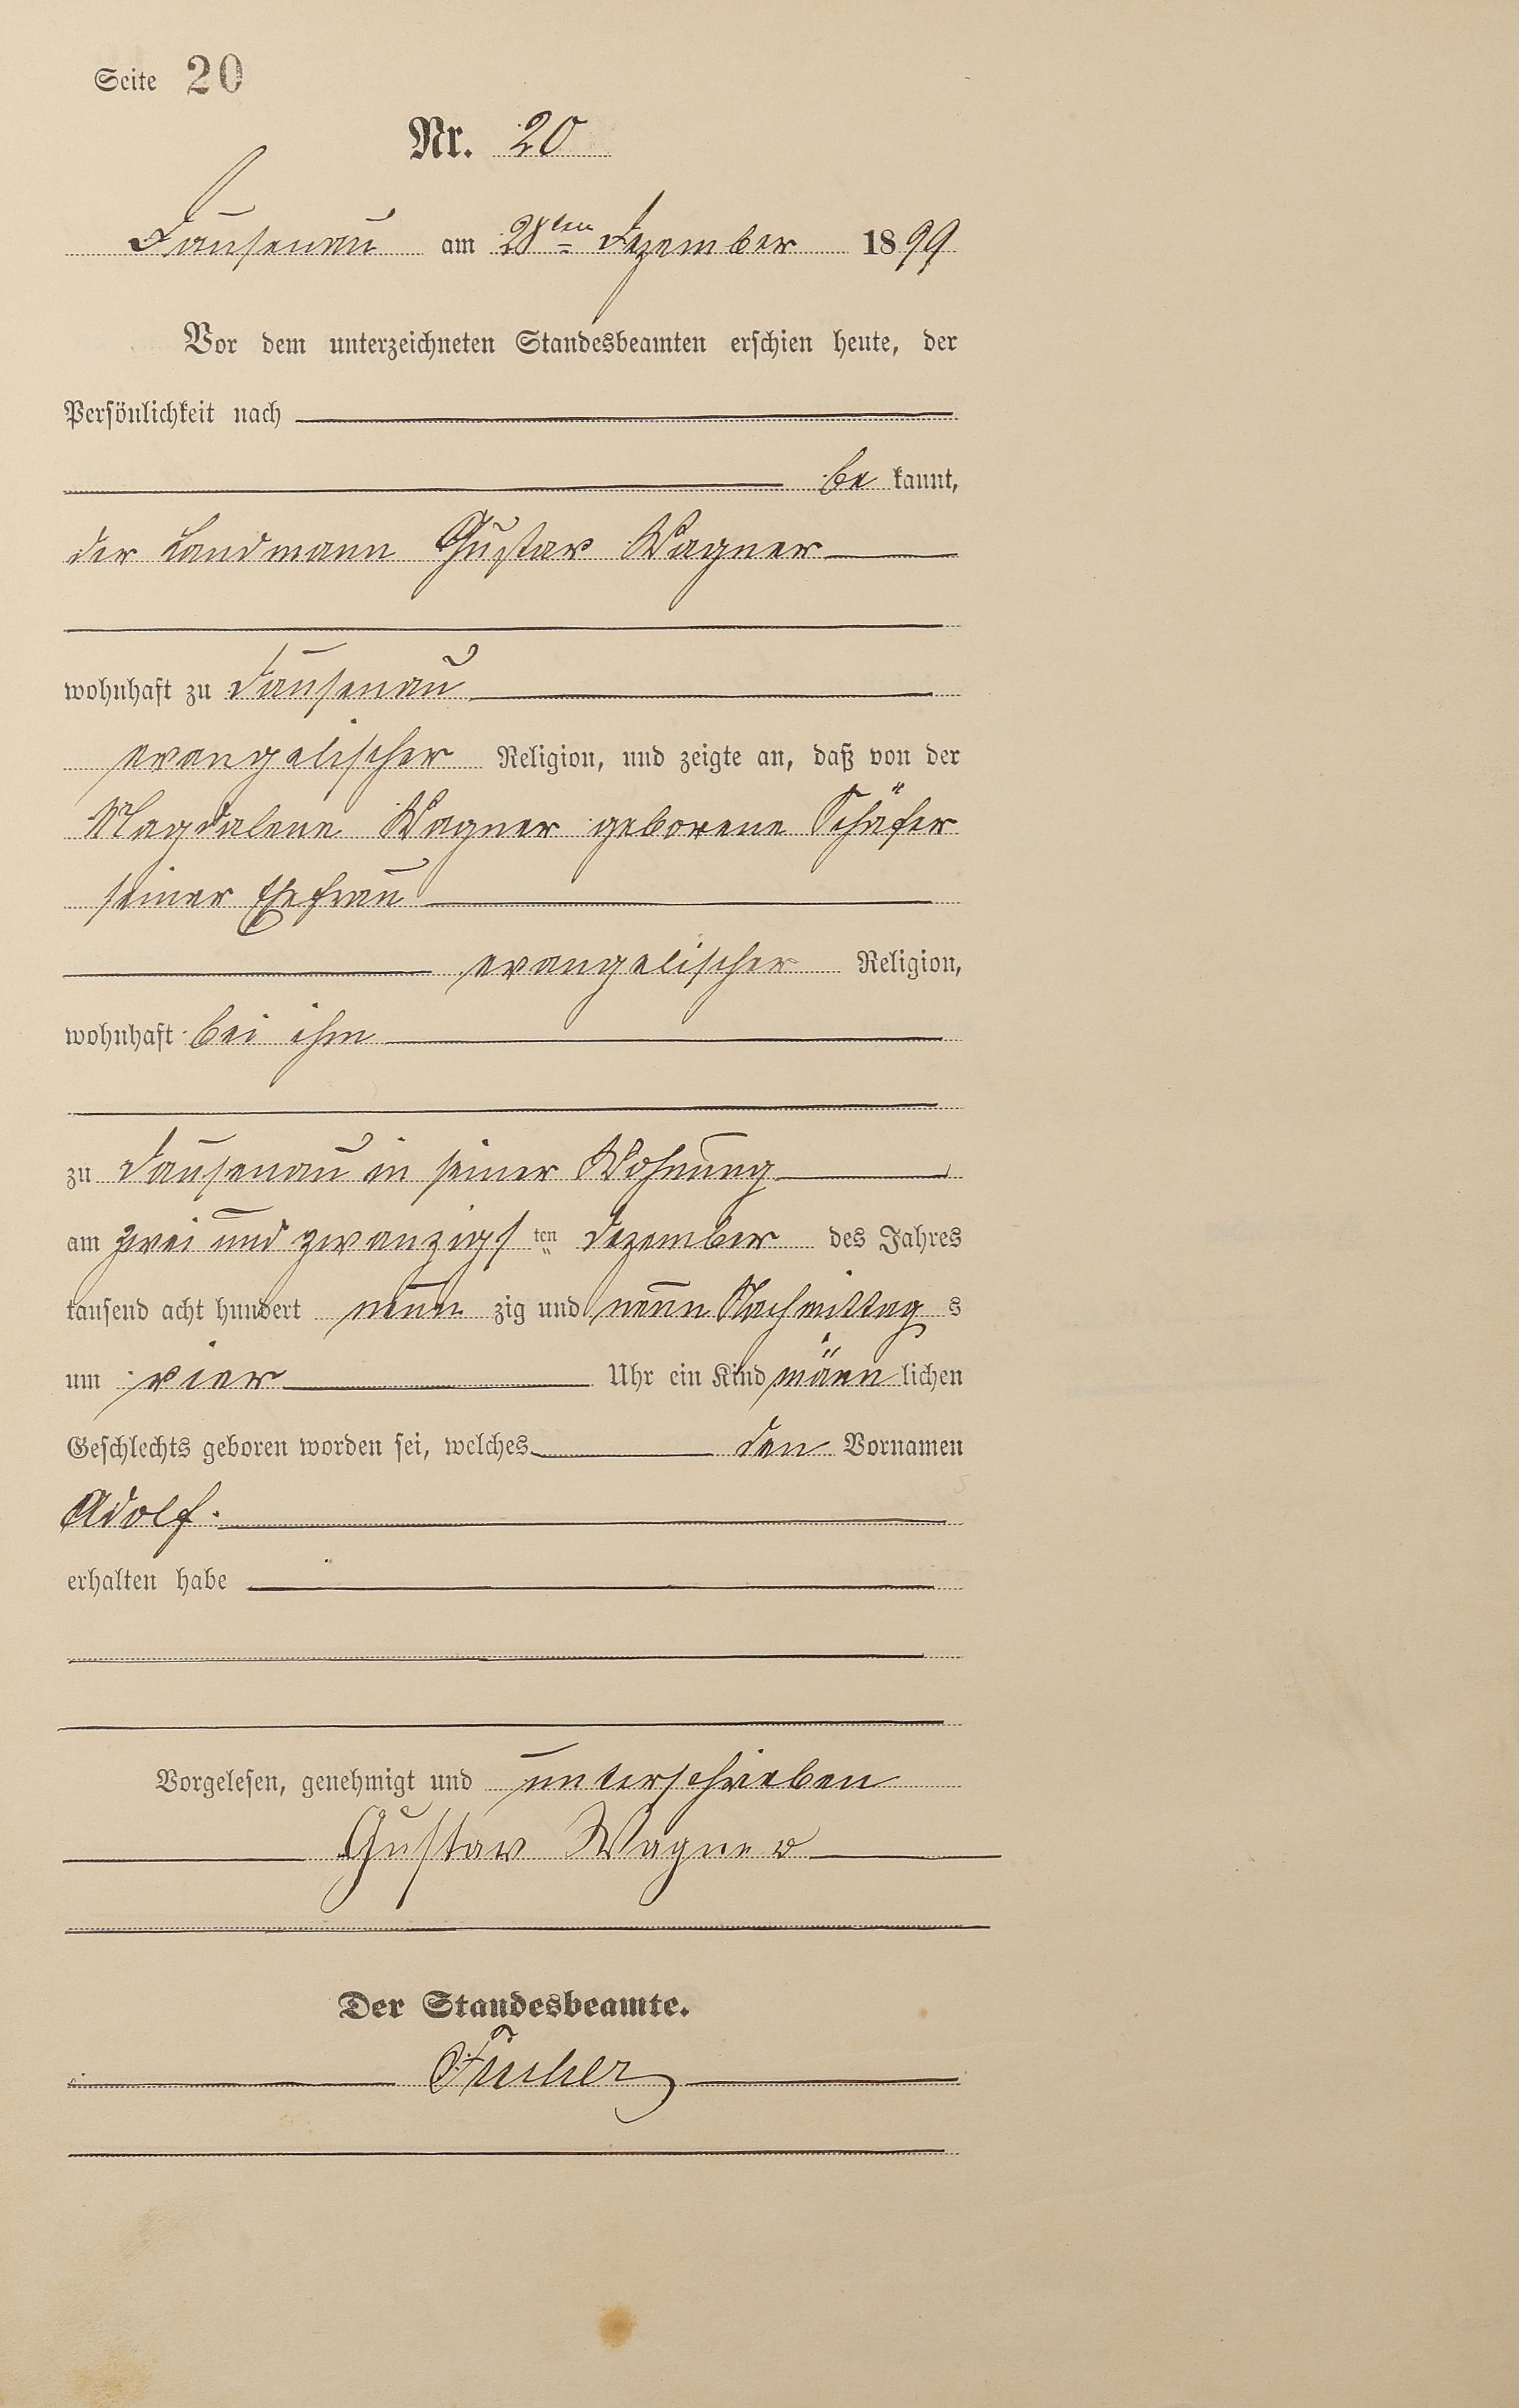 Seite 20
Nr. 20
Dausenau am 28ten Dezember 1899
Vor dem unterzeichneten Standesbeamten erschien heute, der
Persönlichkeit nach
be kannt,
der Landmann Gustav Wagner
wohnhaft zu Dausenau
evangelischer Religion, und zeigte an, daß von der
Magdalene Wagner geborene Schäfer
seiner Ehefrau
evangelischer Religion,
wohnhaft bei ihm
zu Dausenau in seiner Wohnung
am zwei und zwanzigs ten Dezember des Jahres
tausend acht hundert neun zig und neun Nachmittag s
um vier Uhr ein Kind männ lichen
Geschlechts geboren worden sei, welches den Vornamen
Adolf.
erhalten habe
Vorgelesen, genehmigt und unterschrieben
Gustav Wagner
Der Standesbeamte.